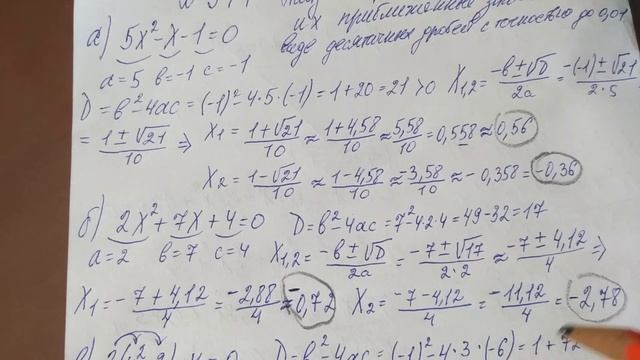 их приближенные
а) 5x² - x - 1 = 0 виде десятичных дробей с точностью до 0,01
a = 5 b = -1 c = -1
D = b² - 4ac = (-1)² - 4·5·(-1) = 1 + 20 = 21 > 0 X₁,₂ = (-b ± √D)/2a = (-(-1) ± √21)/(2·5)
= (1 ± √21)/10 ⇒ X₁ = (1 + √21)/10 ≈ (1 + 4,58)/10 ≈ 5,58/10 = 0,558 ≈ 0,56
X₂ = (1 - √21)/10 ≈ (1 - 4,58)/10 ≈ -3,58/10 ≈ -0,358 = -0,36
б) 2x² + 7x + 4 = 0 D = b² - 4ac = 7² - 4·2·4 = 49 - 32 = 17
a = 2 b = 7 c = 4 X₁,₂ = (-b ± √D)/2a = (-7 ± √17)/(2·2) ≈ (-7 ± 4,12)/4 ⇒
X₁ = (-7 + 4,12)/4 = -2,88/4 ≈ -0,72 X₂ = (-7 - 4,12)/4 = -11,12/4 = -2,78
D = b² - 4ac = (-1)² - 4·3·(-6) = 1 + 72